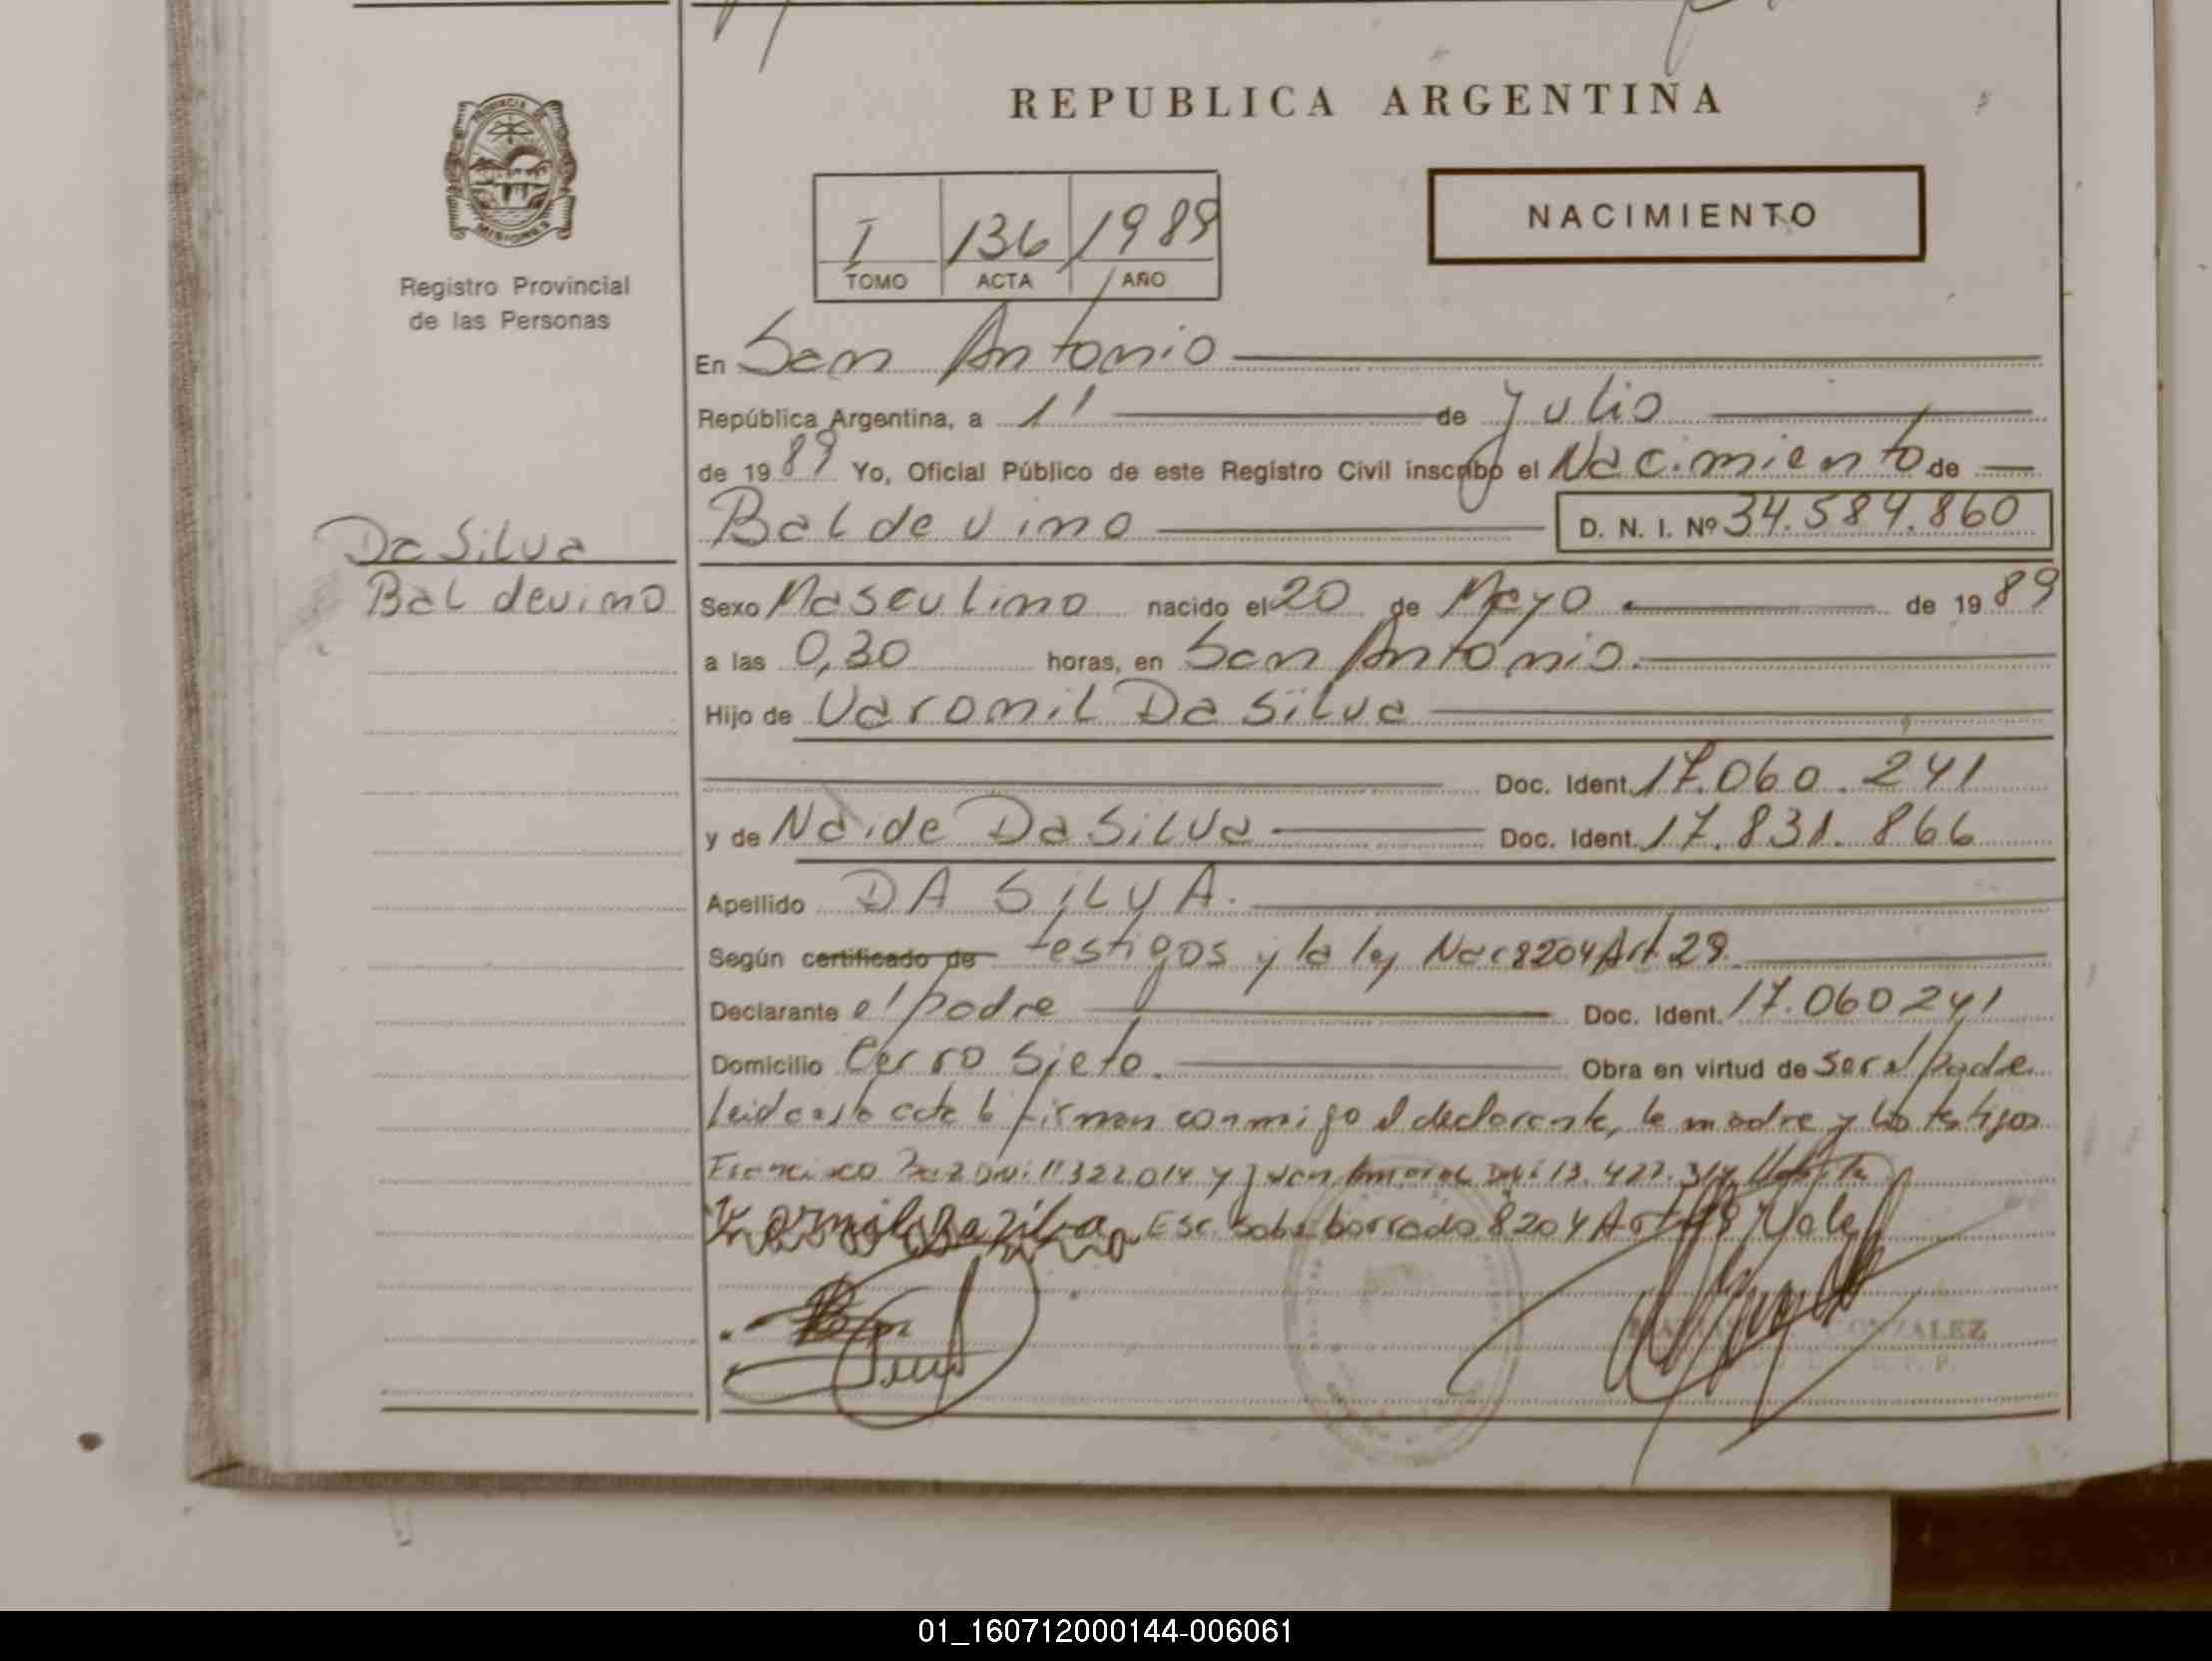 REPUBLICA ARGENTINA
PROVINCIA DE
MISIONES
Registro Provincial
de las Personas
NACIMIENTO
I 136 1989
TOMO ACTA AÑO
En San Antonio
República Argentina, a 1' de Julio
de 1989 Yo, Oficial Público de este Registro Civil inscribo el Nacimiento de
Baldevino D. N. I. Nº 34.584.860
Da Silva
Baldevino
Sexo Masculino nacido el 20 de Mayo de 1989
a las 0,30 horas, en San Antonio.
Hijo de Varomil Da Silva
Doc. Ident. 17.060.241
y de Naide Da Silva Doc. Ident. 17.831.866
Apellido DA SILVA.
Según certificado de testigos y la ley Nac 8204 Art 29.
Declarante el padre Doc. Ident. 17.060241
Domicilio Cerro Siete. Obra en virtud de ser el padre
Leida esta acta la firman conmigo el declarante, la madre y los testigos
Francisco DNI 11322.014 y Juan Amaral DNI 13.427.
Esc. sobre borrado 8204 Art Vale
GONZALEZ
01_160712000144-006061